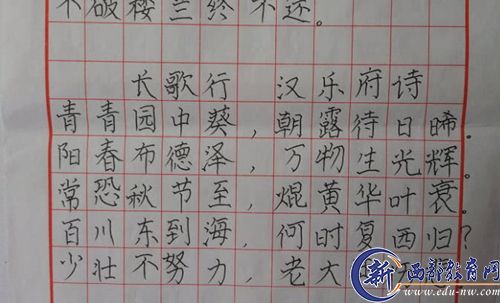 不破楼兰终不还。
长歌行 汉乐府诗
青青园中葵，朝露待日晞。
阳春布德泽，万物生光辉。
常恐秋节至，焜黄华叶衰。
百川东到海，何时复西归？
少壮不努力，老大
新 西部教育网
www.edu-nw.com